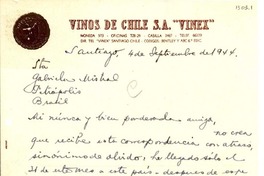 VINOS DE CHILE S.A. "VINEX"
MONEDA 973 - OFICINAS 728-29 - CASILLA - TELEF.
DIR. TEL. "VINEX" SANTIAGO-CHILE - CODIGOS: BENTLEY Y ABC 6ª EDIC.
Santiago, 4 de Septiembre del 944.
Sta
Gabriela Mistral
Petrópolis
Brasil
Mi nunca y bien ponderada amiga,
no crea
que recibe esta correspondencia con atraso,
sinónimo de olvido; he llegado sólo el
31 de mes a este país - después de